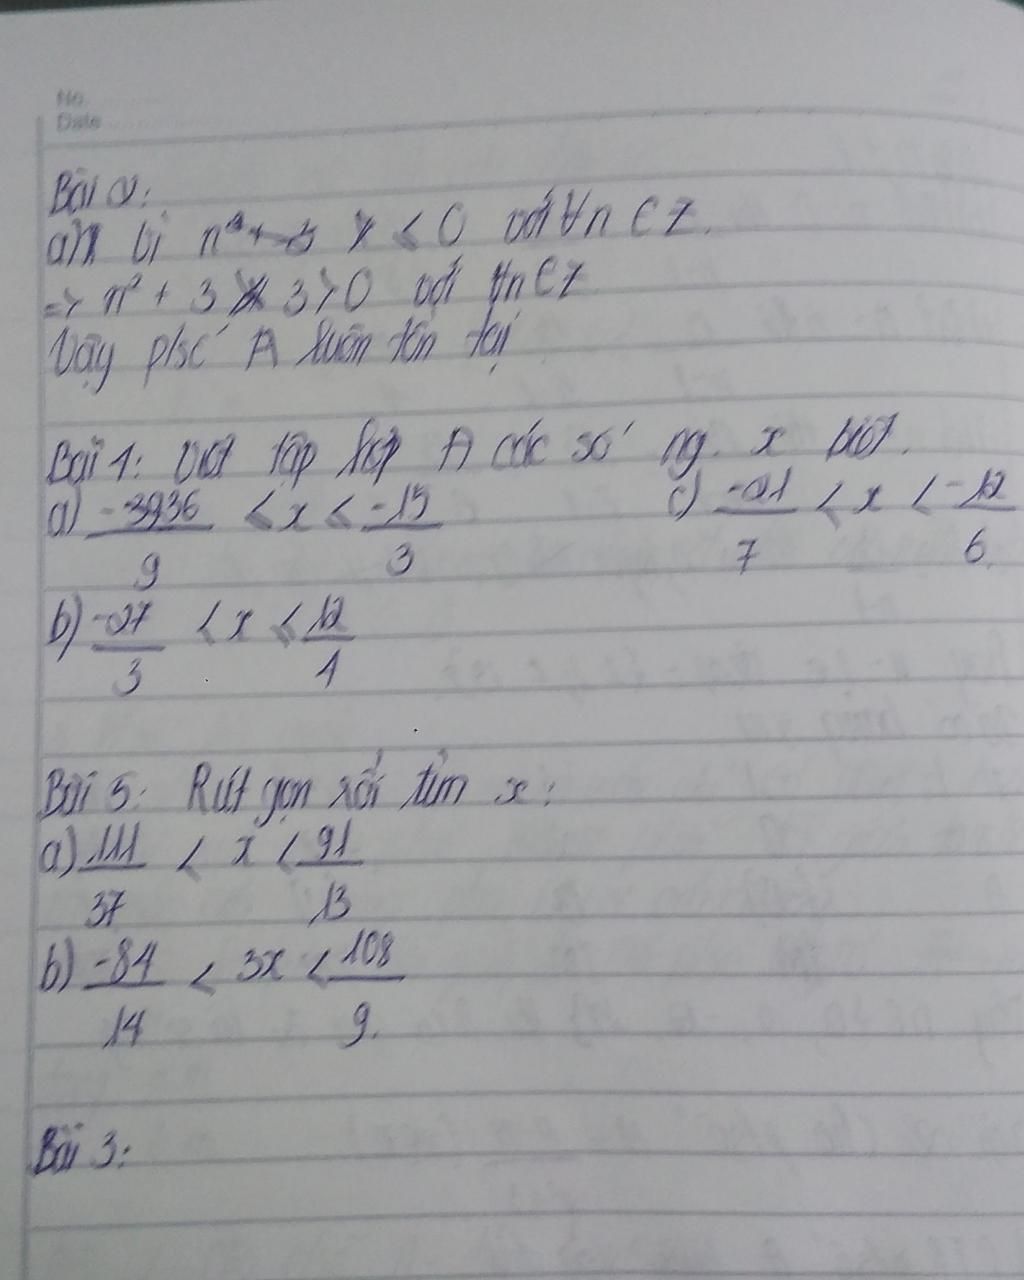 No.
Date
Bài 2:
a) Vì n² + 3 < 0 với ∀n ∈ Z.
=> n² + 3 ≥ 3 > 0 với ∀n ∈ Z
Vậy p/số A luôn tồn tại
Bài 4: Viết tập hợp A các số ng. x biết.
a) -3936/9 ≤ x ≤ -15/3 c) -21/7 < x < -12/6
b) -27/3 < x ≤ 12/4
Bài 5: Rút gọn rồi tìm x:
a) 111/37 < x < 91/13
b) -84/14 < 3x < 108/9.
Bài 3: